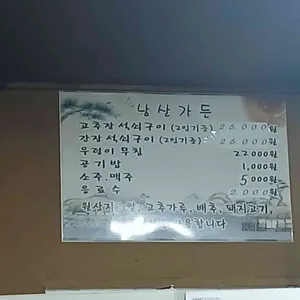 낭산가든
고추장석쇠구이 (2인기준) 26.000원
간장석쇠구이 (2인기준) 26.000원
우렁이무침 22000원
공기밥 1,000원
소주.맥주 5000원
음료수 2.000원
원산지: 쌀, 고추가루, 배추, 돼지고기,
합니다